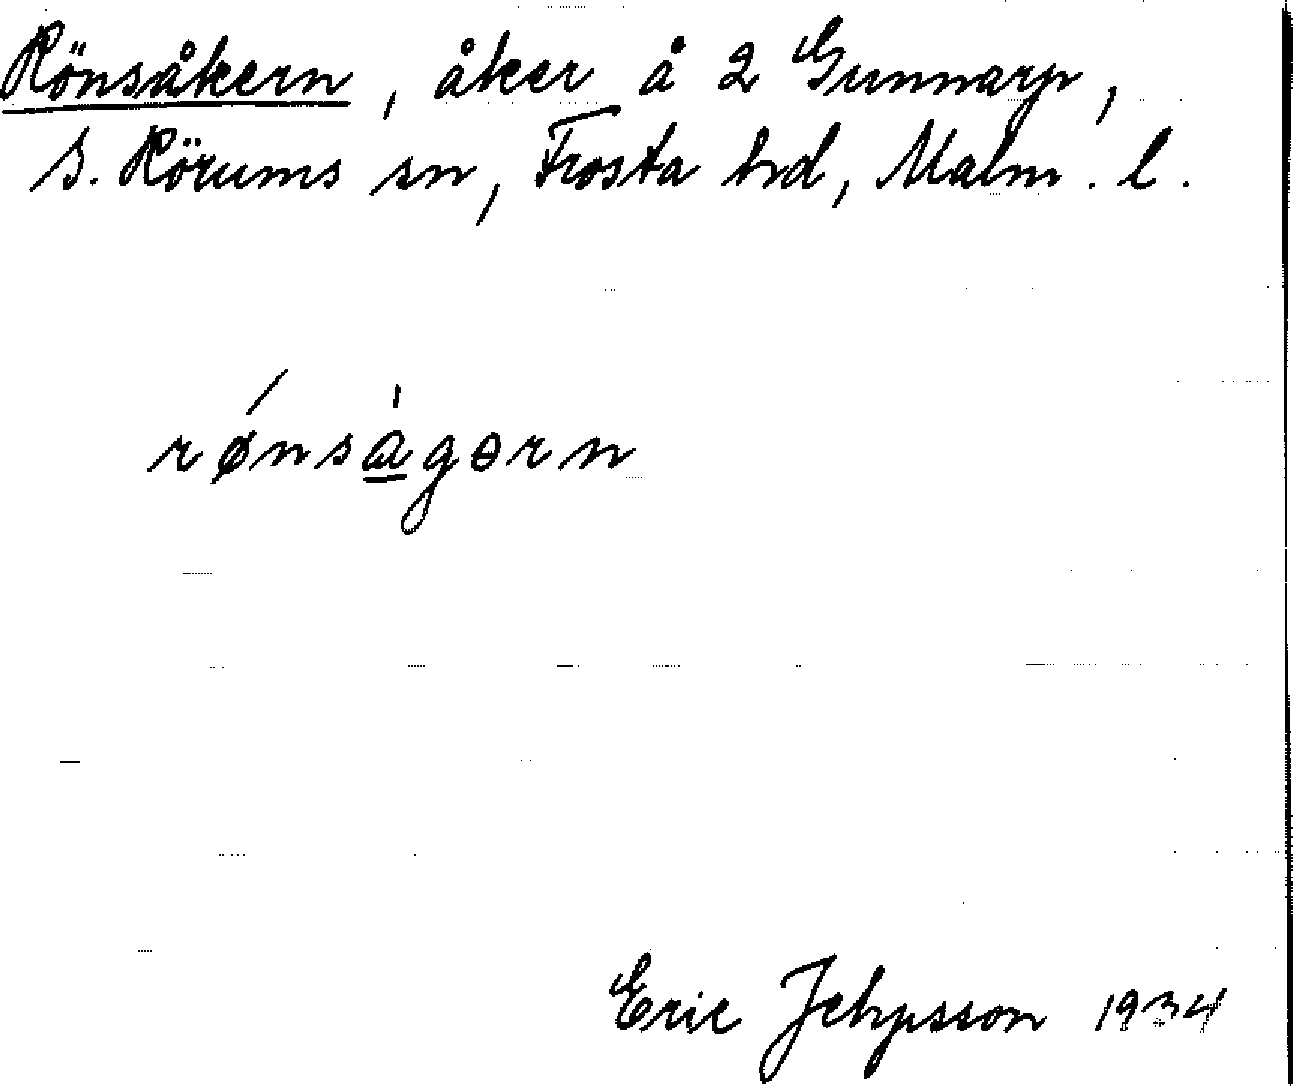 Rönsåkern, åker å 2 Gunnarp,
S. Rörums sn, Frosta hd, Malm. l.
rǿnsa̲̍gərn
Eric Jehpsson 1934